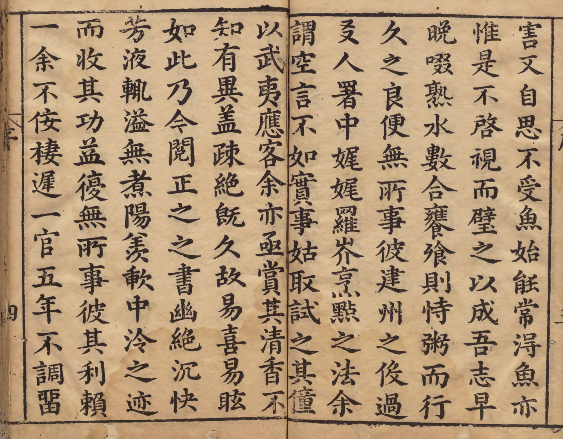 害又自思不受魚始䏻常淂魚亦
惟是不啓視而璧之以成吾志早
晚啜熟水數合饔飱則恃粥而行
久之良便無所事彼建州之役過
友人署中娓娓羅岕烹點之法余
謂空言不如實事姑取試之其僮
以武夷應客余亦亟賞其清香不
知有異盖疎絕旣久故易喜易眩
如此乃今閱正之之書幽絕沉快
芳液輙溢無煮陽羨軟中泠之迹
而收其功益復無所事彼其利賴
一余不佞棲遲一官五年不調畱
四